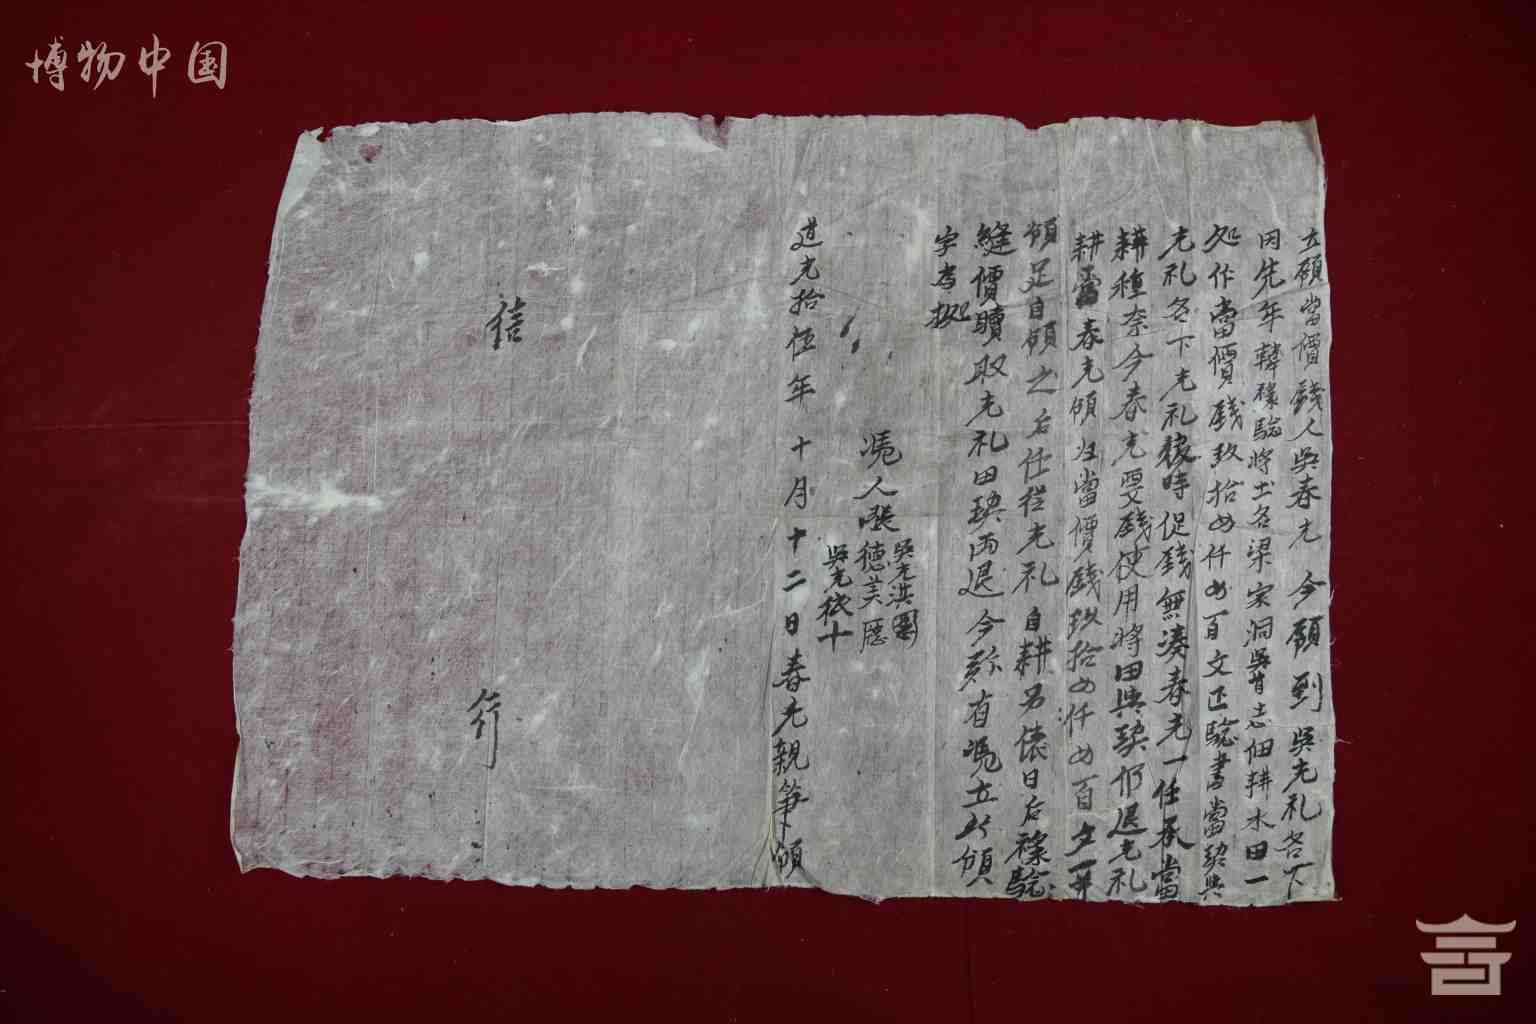 博物中国
立領當價錢人吳春光今領到吳光礼名下
因先年韓祿驗將土名梁家洞吳昔志佃耕水田一
処作當價錢玖拾四仟四百文正驗書當契與
光礼名下光礼後時促錢無湊春光一任承當
耕種奈今春光要錢使用將田與契仍退光礼
耕當春光領爲當價錢玖拾四仟四百文一並
領足自領之后任從光礼自耕另儂日后祿驗
縫價贖取光礼田契兩退今欲有憑立此領
字爲㨿
吳光洪
憑人張德美
吳光 十
道光拾伍年十月十二日春光親筆領
信
行